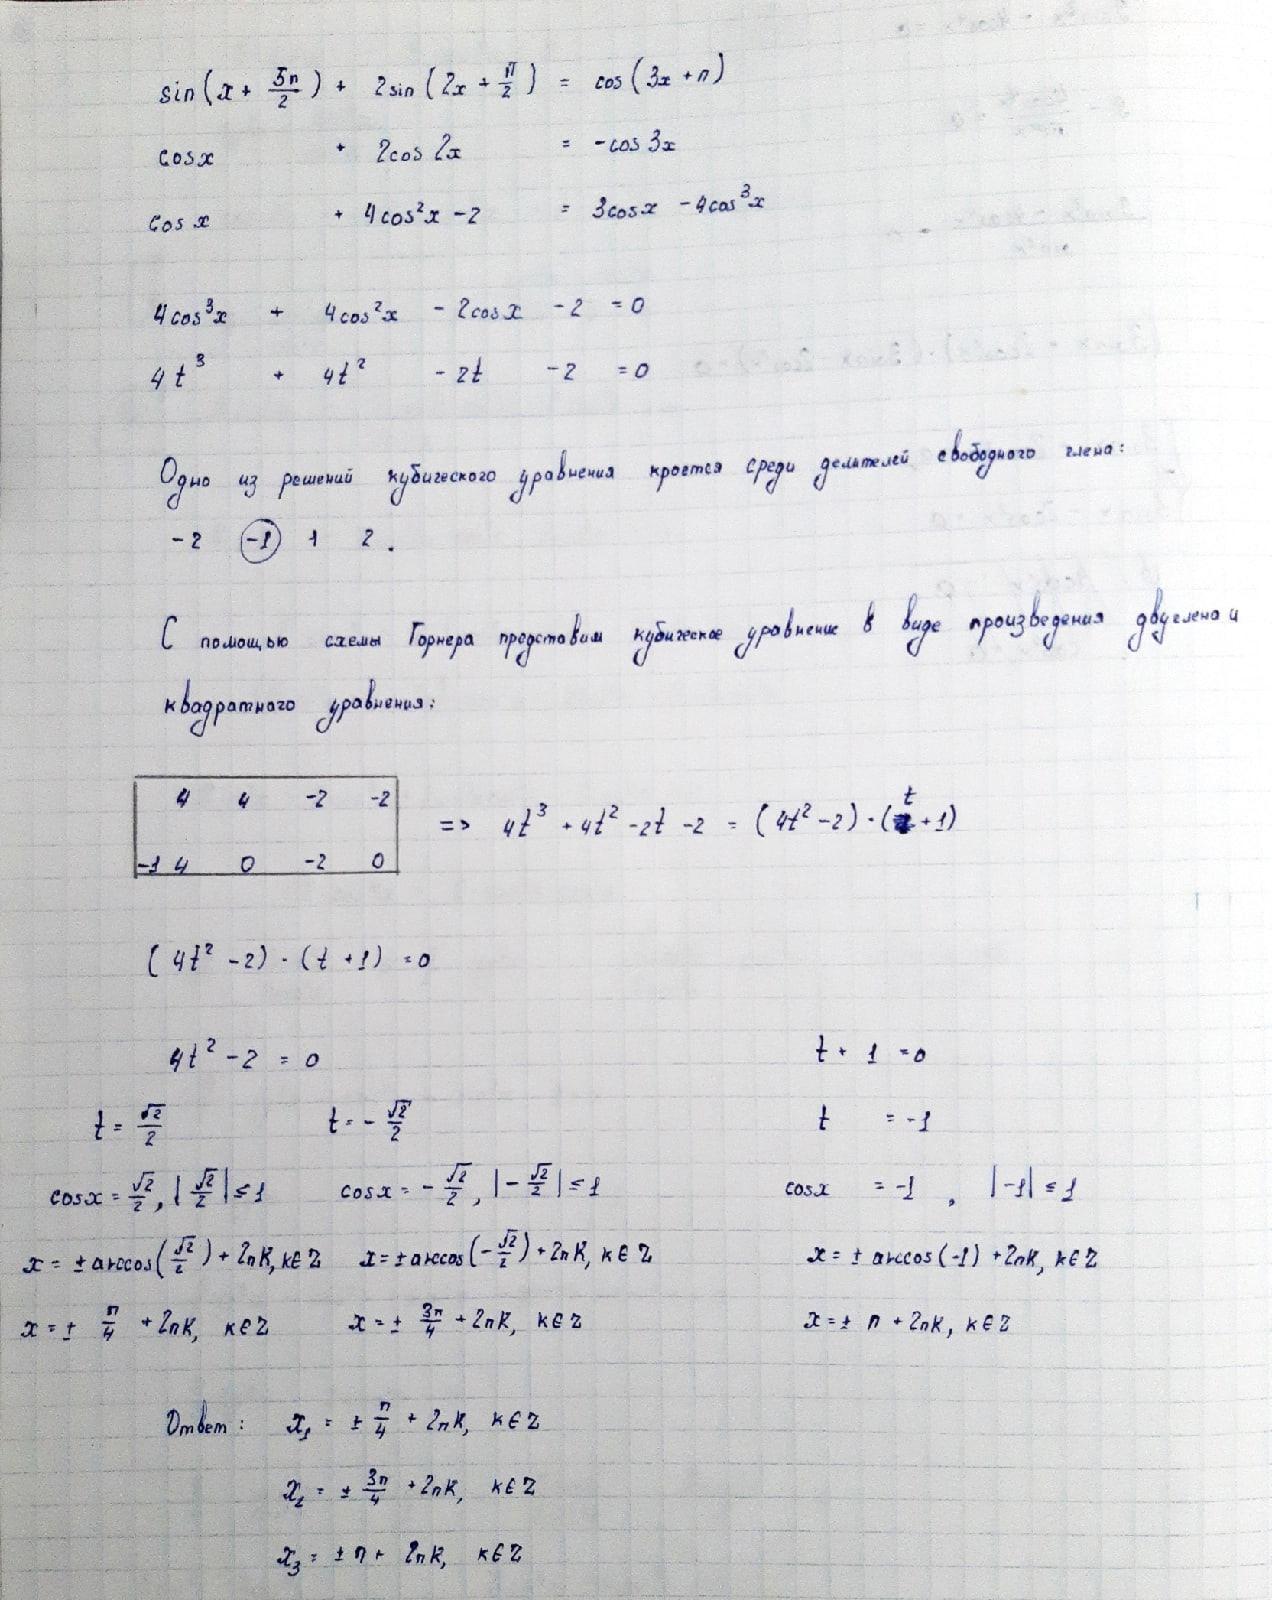 sin(x + 5π/2) + 2sin(2x + π/2) = cos(3x + π)
cosx + 2cos2x = -cos3x
cosx + 4cos²x - 2 = 3cosx - 4cos³x
4cos³x + 4cos²x - 2cosx - 2 = 0
4t³ + 4t² - 2t - 2 = 0
Одно из решений кубического уравнения кроется среди делителей свободного члена:
-2 -1 1 2.
С помощью схемы Горнера представим кубическое уравнение в виде произведения двучлена и
квадратного уравнения:
4 4 -2 -2
-1 4 0 -2 0
=> 4t³ + 4t² - 2t - 2 = (4t² - 2) · (t + 1)
(4t² - 2) · (t + 1) = 0
4t² - 2 = 0 t + 1 = 0
t = √2/2 t = -√2/2 t = -1
cosx = √2/2, |√2/2| ≤ 1 cosx = -√2/2, |-√2/2| ≤ 1 cosx = -1, |-1| ≤ 1
x = ± arccos(√2/2) + 2πk, k∈Z x = ± arccos(-√2/2) + 2πk, k∈Z x = ± arccos(-1) + 2πk, k∈Z
x = ± π/4 + 2πk, k∈Z x = ± 3π/4 + 2πk, k∈Z x = ± π + 2πk, k∈Z
Ответ: x₁ = ± π/4 + 2πk, k∈Z
x₂ = ± 3π/4 + 2πk, k∈Z
x₃ = ± π + 2πk, k∈Z